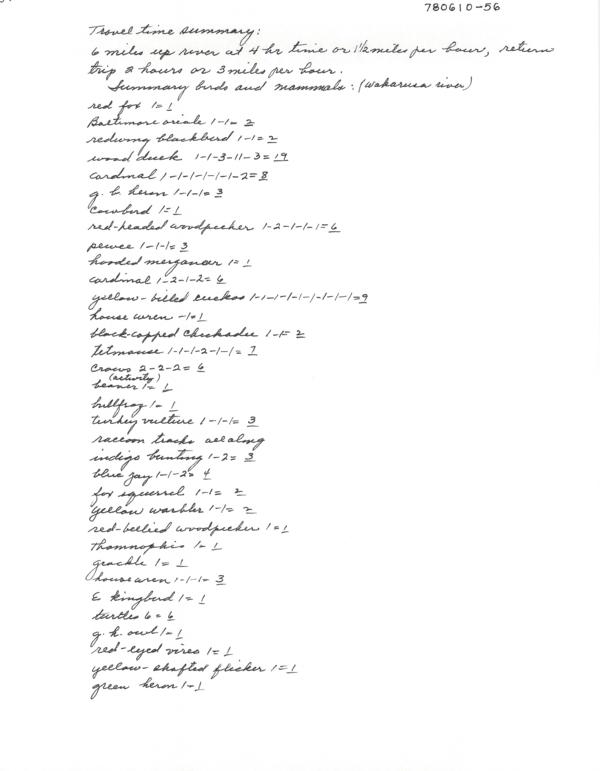 780610-56
Travel time summary:
6 miles up river at 4 hr time or 1 1/2 miles per hour, return
trip 2 hours or 3 miles per hour.
Summary birds and mammals: (Wakarusa river)
red fox 1=1
Baltimore oriole 1-1-=2
redwing blackbird 1-1=2
wood duck 1-1-3-11-3=19
cardinal 1-1-1-1-1-1-2=8
g. b. heron 1-1-1=3
Cowbird 1=1
red-headed woodpecker 1-2-1-1-1=6
pewee 1-1-1=3
hooded merganser 1=1
cardinal 1-2-1-2=6
yellow-billed cuckoo 1-1-1-1-1-1-1-1-1=9
house wren -1=1
black-capped chickadee 1-1=2
titmouse 1-1-1-2-1-1=7
Crows 2-2-2=6
(activity)
beaver 1=1
bullfrog 1=1
turkey vulture 1-1-1=3
raccoon tracks all along
indigo bunting 1-2=3
blue jay 1-1-2=4
fox squirrel 1-1=2
yellow warbler 1-1=2
red-bellied woodpecker 1=1
Thamnophis 1=1
grackle 1=1
house wren 1-1-1=3
E kingbird 1=1
turtles 6=6
g. h. owl 1=1
red-eyed vireo 1=1
yellow-shafted flicker 1=1
green heron 1=1